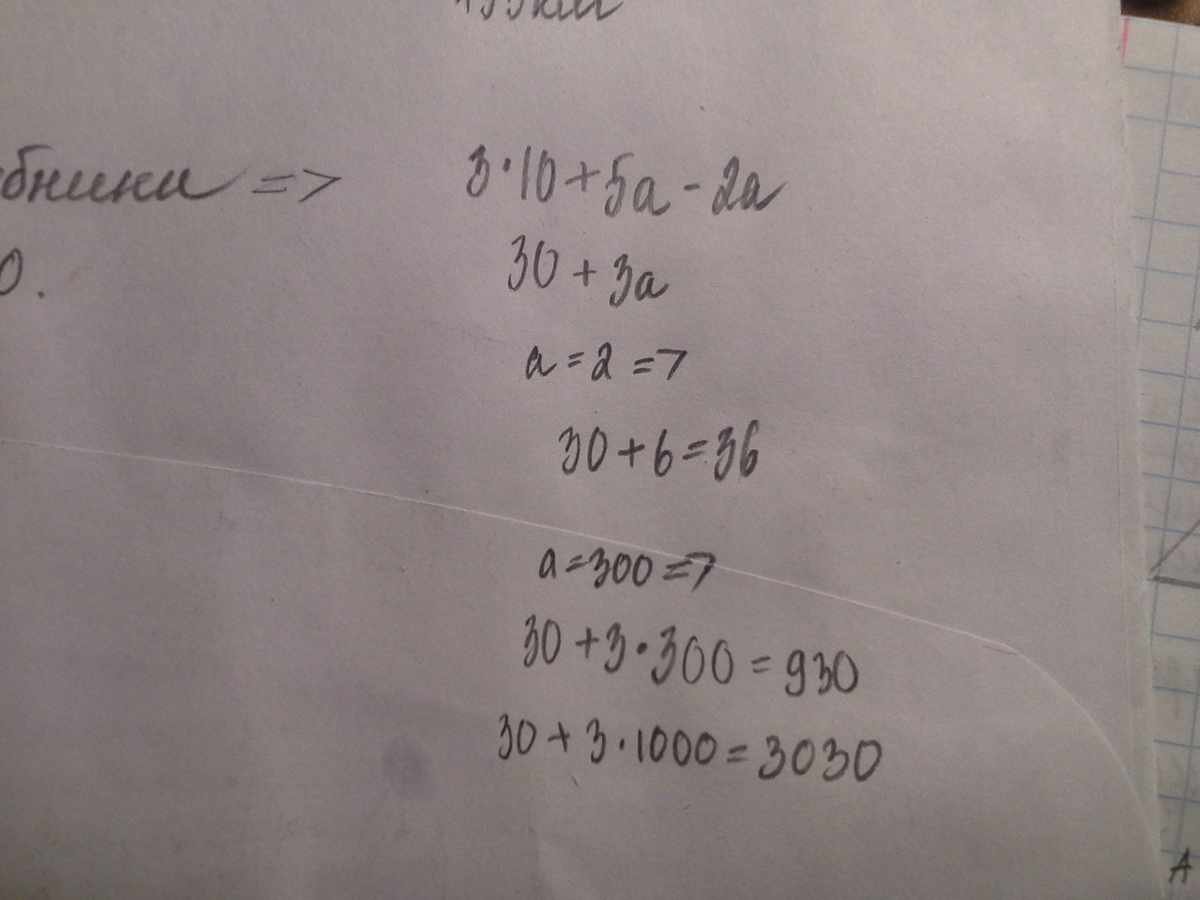 => 3·10+5a-2a
0.
30+3a
a=2=>
30+6=36
a=300=>
30+3·300=930
30+3·1000=3030
A